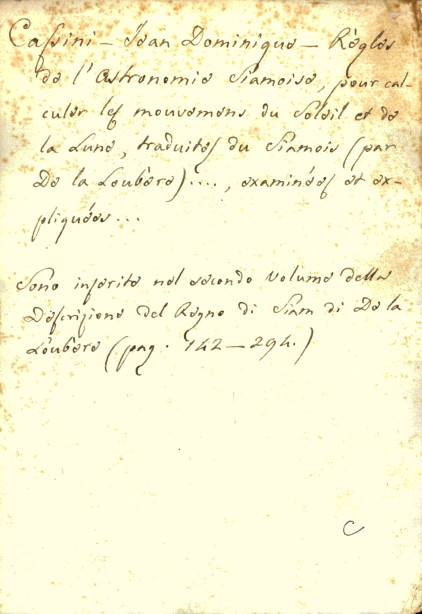 Caſsini — Jean Dominique — Règles
de l'Astronomie Siamoise, pour cal-
culer leſ mouvemens du Soleil et de
la Lune, traduiteſ du Siamois (par
De la Loubère) ...., examinéeſ et ex-
pliquées ...
Sono inſerite nel secondo volume della
Deſcrizione del Regno di Siam di De la
Loubère (pag. 142 — 294.)
C